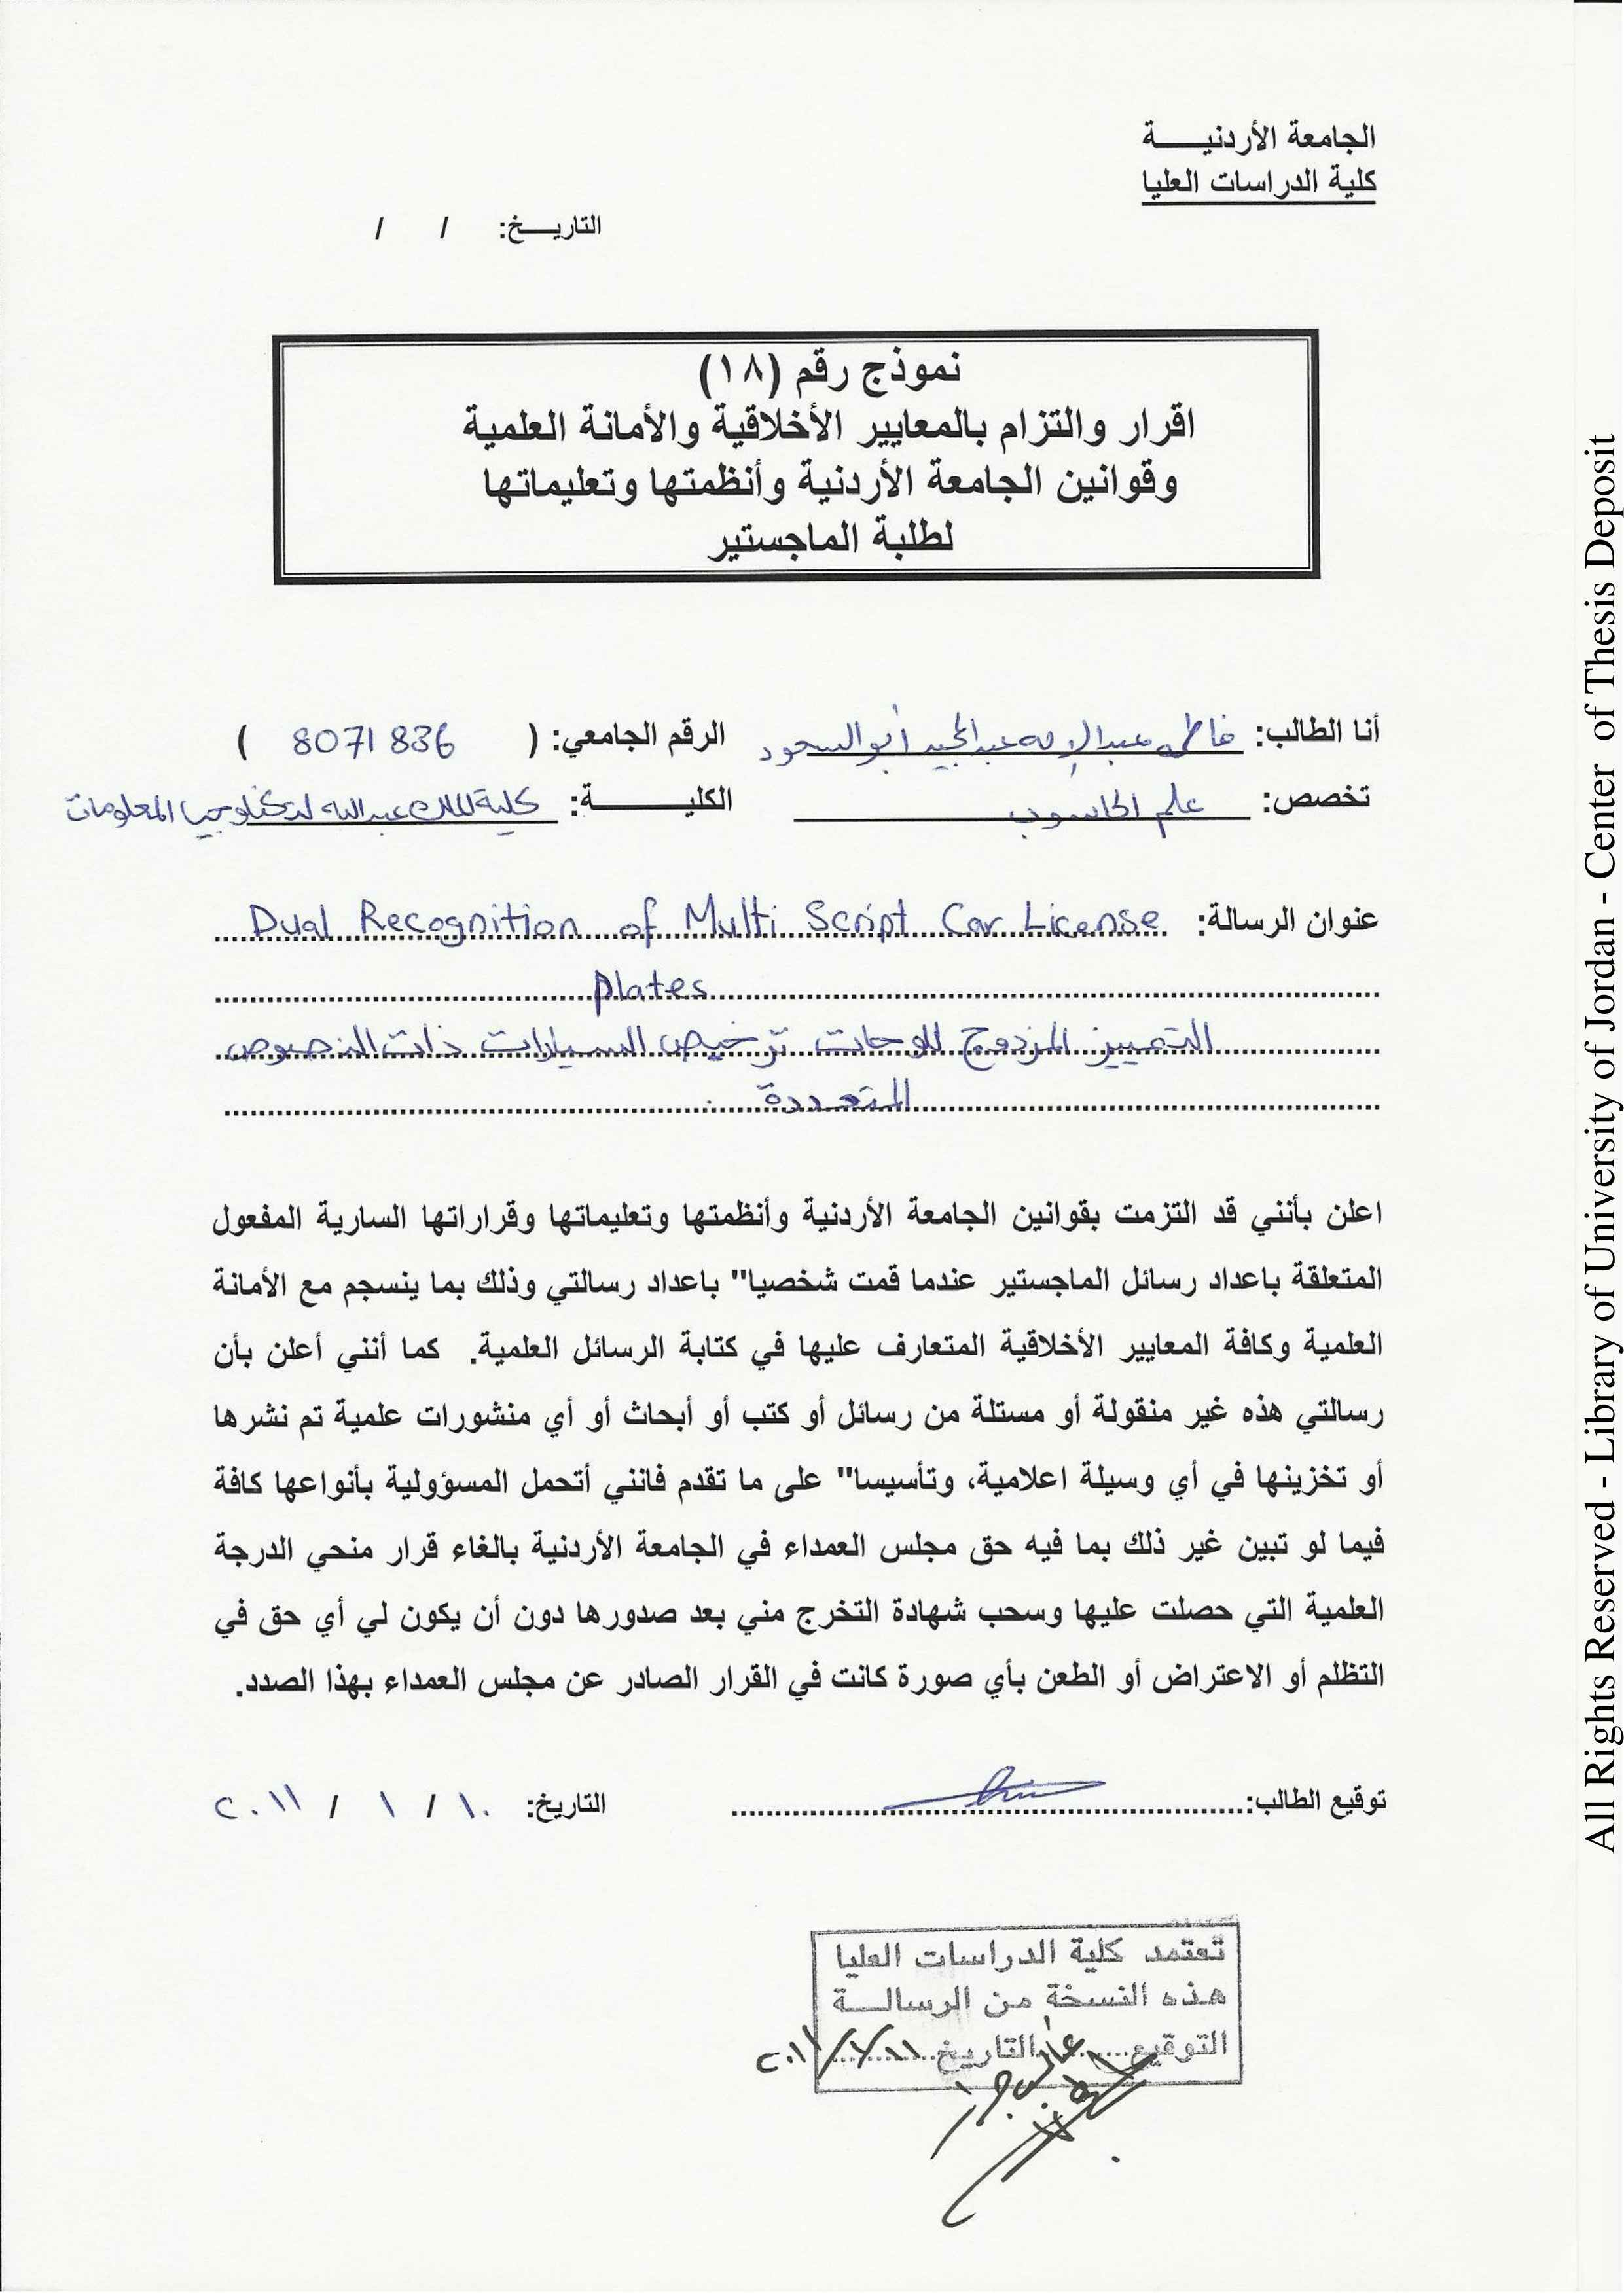 الجامعة الأردنيـــــة
كلية الدراسات العليا
التاريـــخ: / /
نموذج رقم (١٨)
اقرار والتزام بالمعايير الأخلاقية والأمانة العلمية
وقوانين الجامعة الأردنية وأنظمتها وتعليماتها
لطلبة الماجستير
أنا الطالب: فاطمه عبد الإله عبد المجيد أبو السعود الرقم الجامعي: ( 8071836 )
تخصص: علم الحاسوب الكليـــــة: كلية الملك عبد الله لتكنلوجيا المعلومات
عنوان الرسالة: Dual Recognition of Multi Script Car License
plates
التمييز المزدوج للوحات ترخيص السيارات ذات النصوص
المتعددة .
اعلن بأنني قد التزمت بقوانين الجامعة الأردنية وأنظمتها وتعليماتها وقراراتها السارية المفعول
المتعلقة باعداد رسائل الماجستير عندما قمت شخصيا" باعداد رسالتي وذلك بما ينسجم مع الأمانة
العلمية وكافة المعايير الأخلاقية المتعارف عليها في كتابة الرسائل العلمية. كما أنني أعلن بأن
رسالتي هذه غير منقولة أو مستلة من رسائل أو كتب أو أبحاث أو أي منشورات علمية تم نشرها
أو تخزينها في أي وسيلة اعلامية، وتأسيسا" على ما تقدم فانني أتحمل المسؤولية بأنواعها كافة
فيما لو تبين غير ذلك بما فيه حق مجلس العمداء في الجامعة الأردنية بالغاء قرار منحي الدرجة
العلمية التي حصلت عليها وسحب شهادة التخرج مني بعد صدورها دون أن يكون لي أي حق في
التظلم أو الاعتراض أو الطعن بأي صورة كانت في القرار الصادر عن مجلس العمداء بهذا الصدد.
توقيع الطالب: التاريخ: ١٠ / ١ / ٢٠١١
تعتمد كلية الدراسات العليا
هذه النسخة من الرسالـــة
التوقيع......... التاريخ.........
All Rights Reserved - Library of University of Jordan - Center of Thesis Deposit